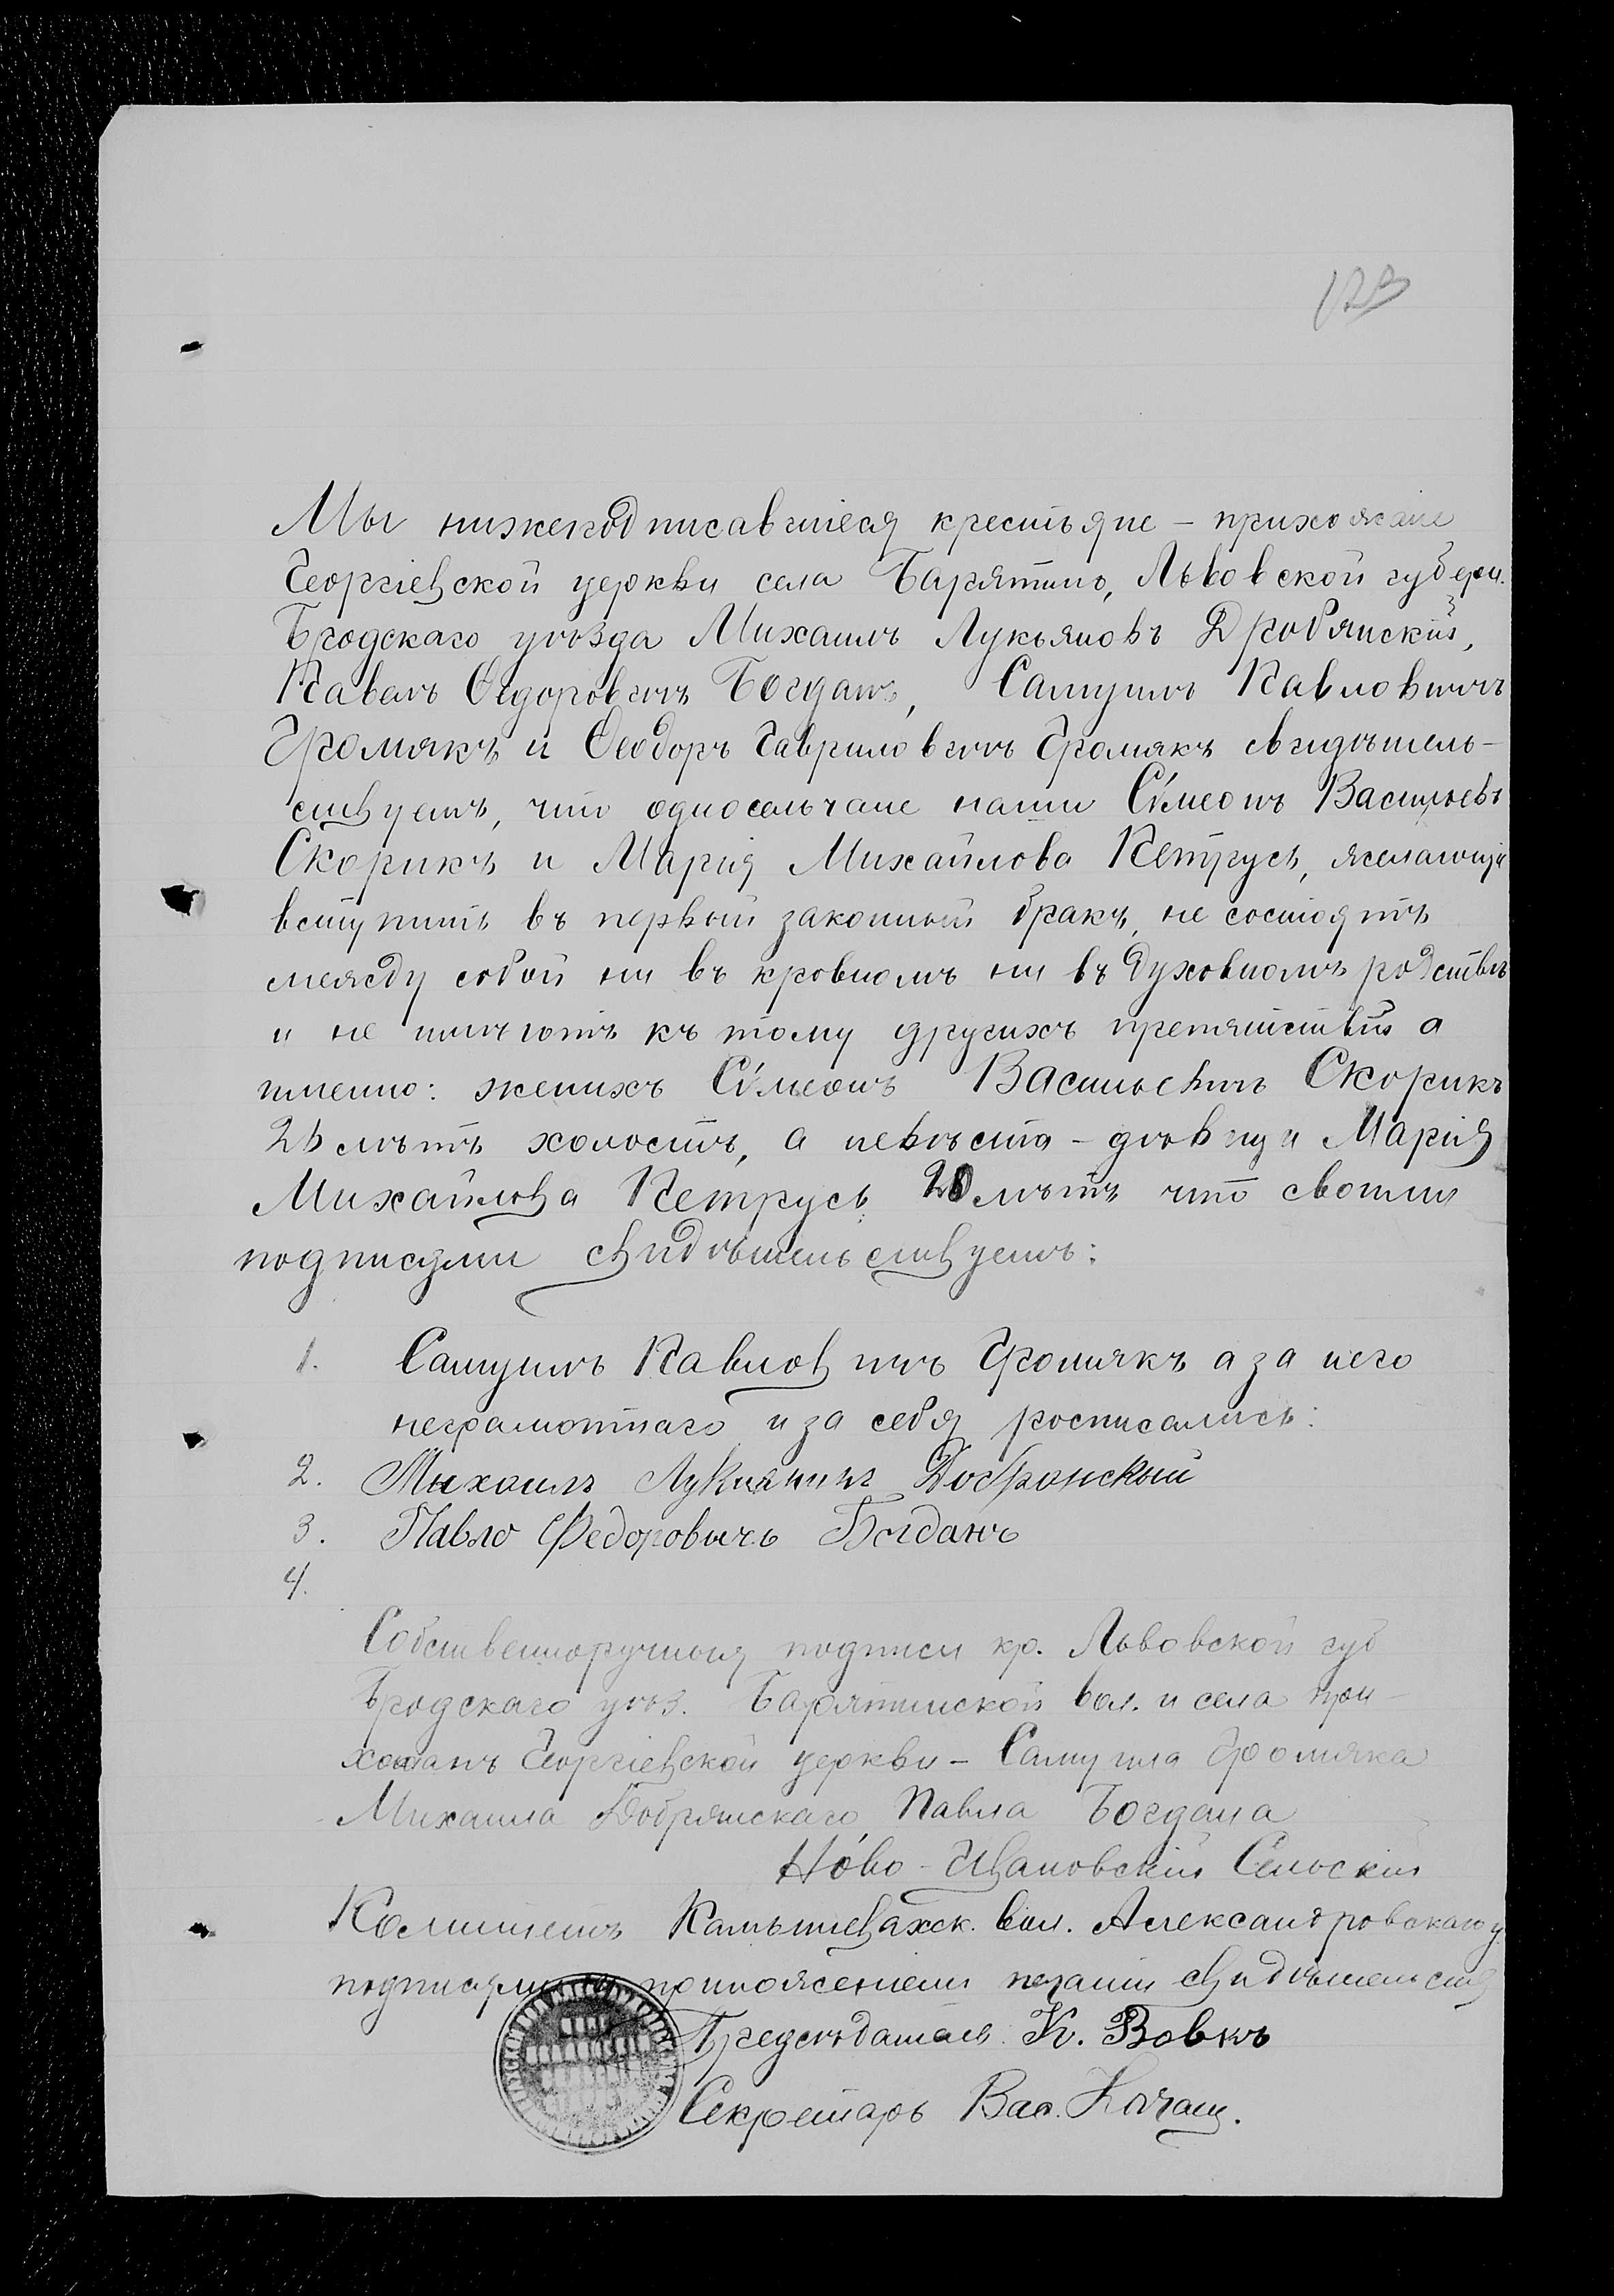 123
Мы нижеподписавшіеся крестьяне – прихожане
Георгіевской церкви села Барятино, Львовской губерн.
Бродскаго уѣзда Михаилъ Лукьяновъ Дробянскій,
Павелъ Ѳедоровичъ Богданъ, Самуилъ Павловичъ
Громякъ и Ѳеодоръ Гавриловичъ Громякъ свидѣтель-
ствуемъ, что односельчане наши Сѵмеонъ Васильевъ
Скорикъ и Марія Михайлова Петрусь, желающіе
вступить въ первый законный бракъ, не состоятъ
между собой ни въ кровномъ ни въ духовномъ родствѣ
и не имѣютъ къ тому другихъ препятствій а
именно: женихъ Сѵмеонъ Васильевичъ Скорикъ
лѣтъ холостъ, а невѣста – дѣвица Марія
Михайлова Петрусь 20 лѣтъ что своими
подписями свидѣтельствуемъ:
1. Самуилъ Павловичъ Громякъ а за него
неграмотнаго и за себя росписались:
2. Михаилъ Добрянскый
3. Павло Федоровычъ Богданъ
4.
Собственноручныя подписи кр. Львовской губ
Бродскаго уѣз. Барятинской вол. и села при-
хожанъ Георгіевской церкви – Самуила Громяка
Михаила Добрянскаго Павла Богдана
Ново-Ивановскій Сельскій
Комитетъ Камышевахск. вол. Александровскаго у.
подписями и приложеніемъ печати свидѣтельств
Предсѣдатель К. Вовкъ
Секретарь Вас.